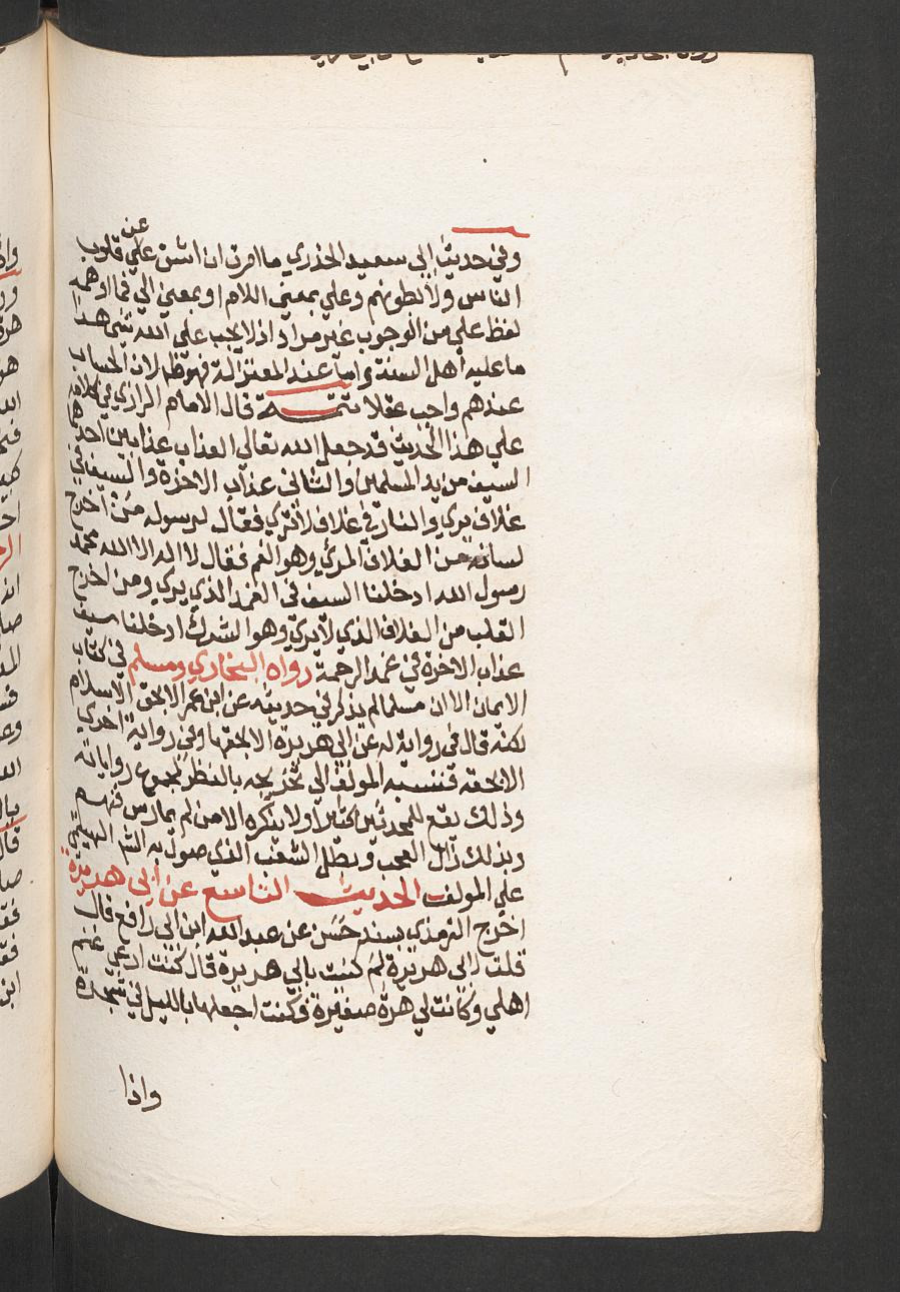 وفي حديث ابي سعيد الخدري ما امرت ان اشق علي عن قلوب
الناس ولا بطونهم وعلي بمعني اللام او بمعني الي فما اوهمه
لفظ علي من الوجوب غير مراد اذ لا يجب علي الله شي هذا
ما عليه أهل السنة واما عند المعتزلة فهو ظ لان الحساب
عندهم واجب عقلا تتمـــة قال الامام الرازي في كلامه
علي هذا الحديث قد جعل الله تعالي العذاب عذابين احدهما
السيف من يد المسلمين والثاني عذاب الاخرة والسيف في
غلاف يري والنار في غلاف لا تري فقال لرسوله من أخرج
لسانه من الغلاف المرئ وهو الفم فقال لا اله الا الله محمد
رسول الله ادخلنا السيف في الغمد الذي يري ومن اخرج
القلب من الغلاف الذي لا يري وهو الشرك ادخلنا سيف
عذاب الاخرة في غمد الرحمة رواه البخاري ومسلم في كتاب
الايمان الا ان مسلما لم يذكر في حديثه عن ابن عمر الا بحق الاسلام
لكنه قال في رواية له عن ابي هريرة الا بحقها وفي رواية اخري
الا بحقه فنسبه المولف الي تخريجه بالنظر لمجموع رواياته
وذلك يقع للمحدثين كثيرا ولا ينكره الا من لم يمارس فنهم
وبذلك زال العجب وبطل الشغب الذي صول به الشم الهيتمي
علي المولف الحديث التاسع عن أبي هريرة
اخرج الترمذي بسند حسن عن عبد الله ابن ابي رافع قال
قلت لابي هريرة لم كنيت بابي هريرة قال كنت ارعي غنم
اهلي وكانت لي هرة صغيرة فكنت اجعلها بالليل في شجرة
واذا